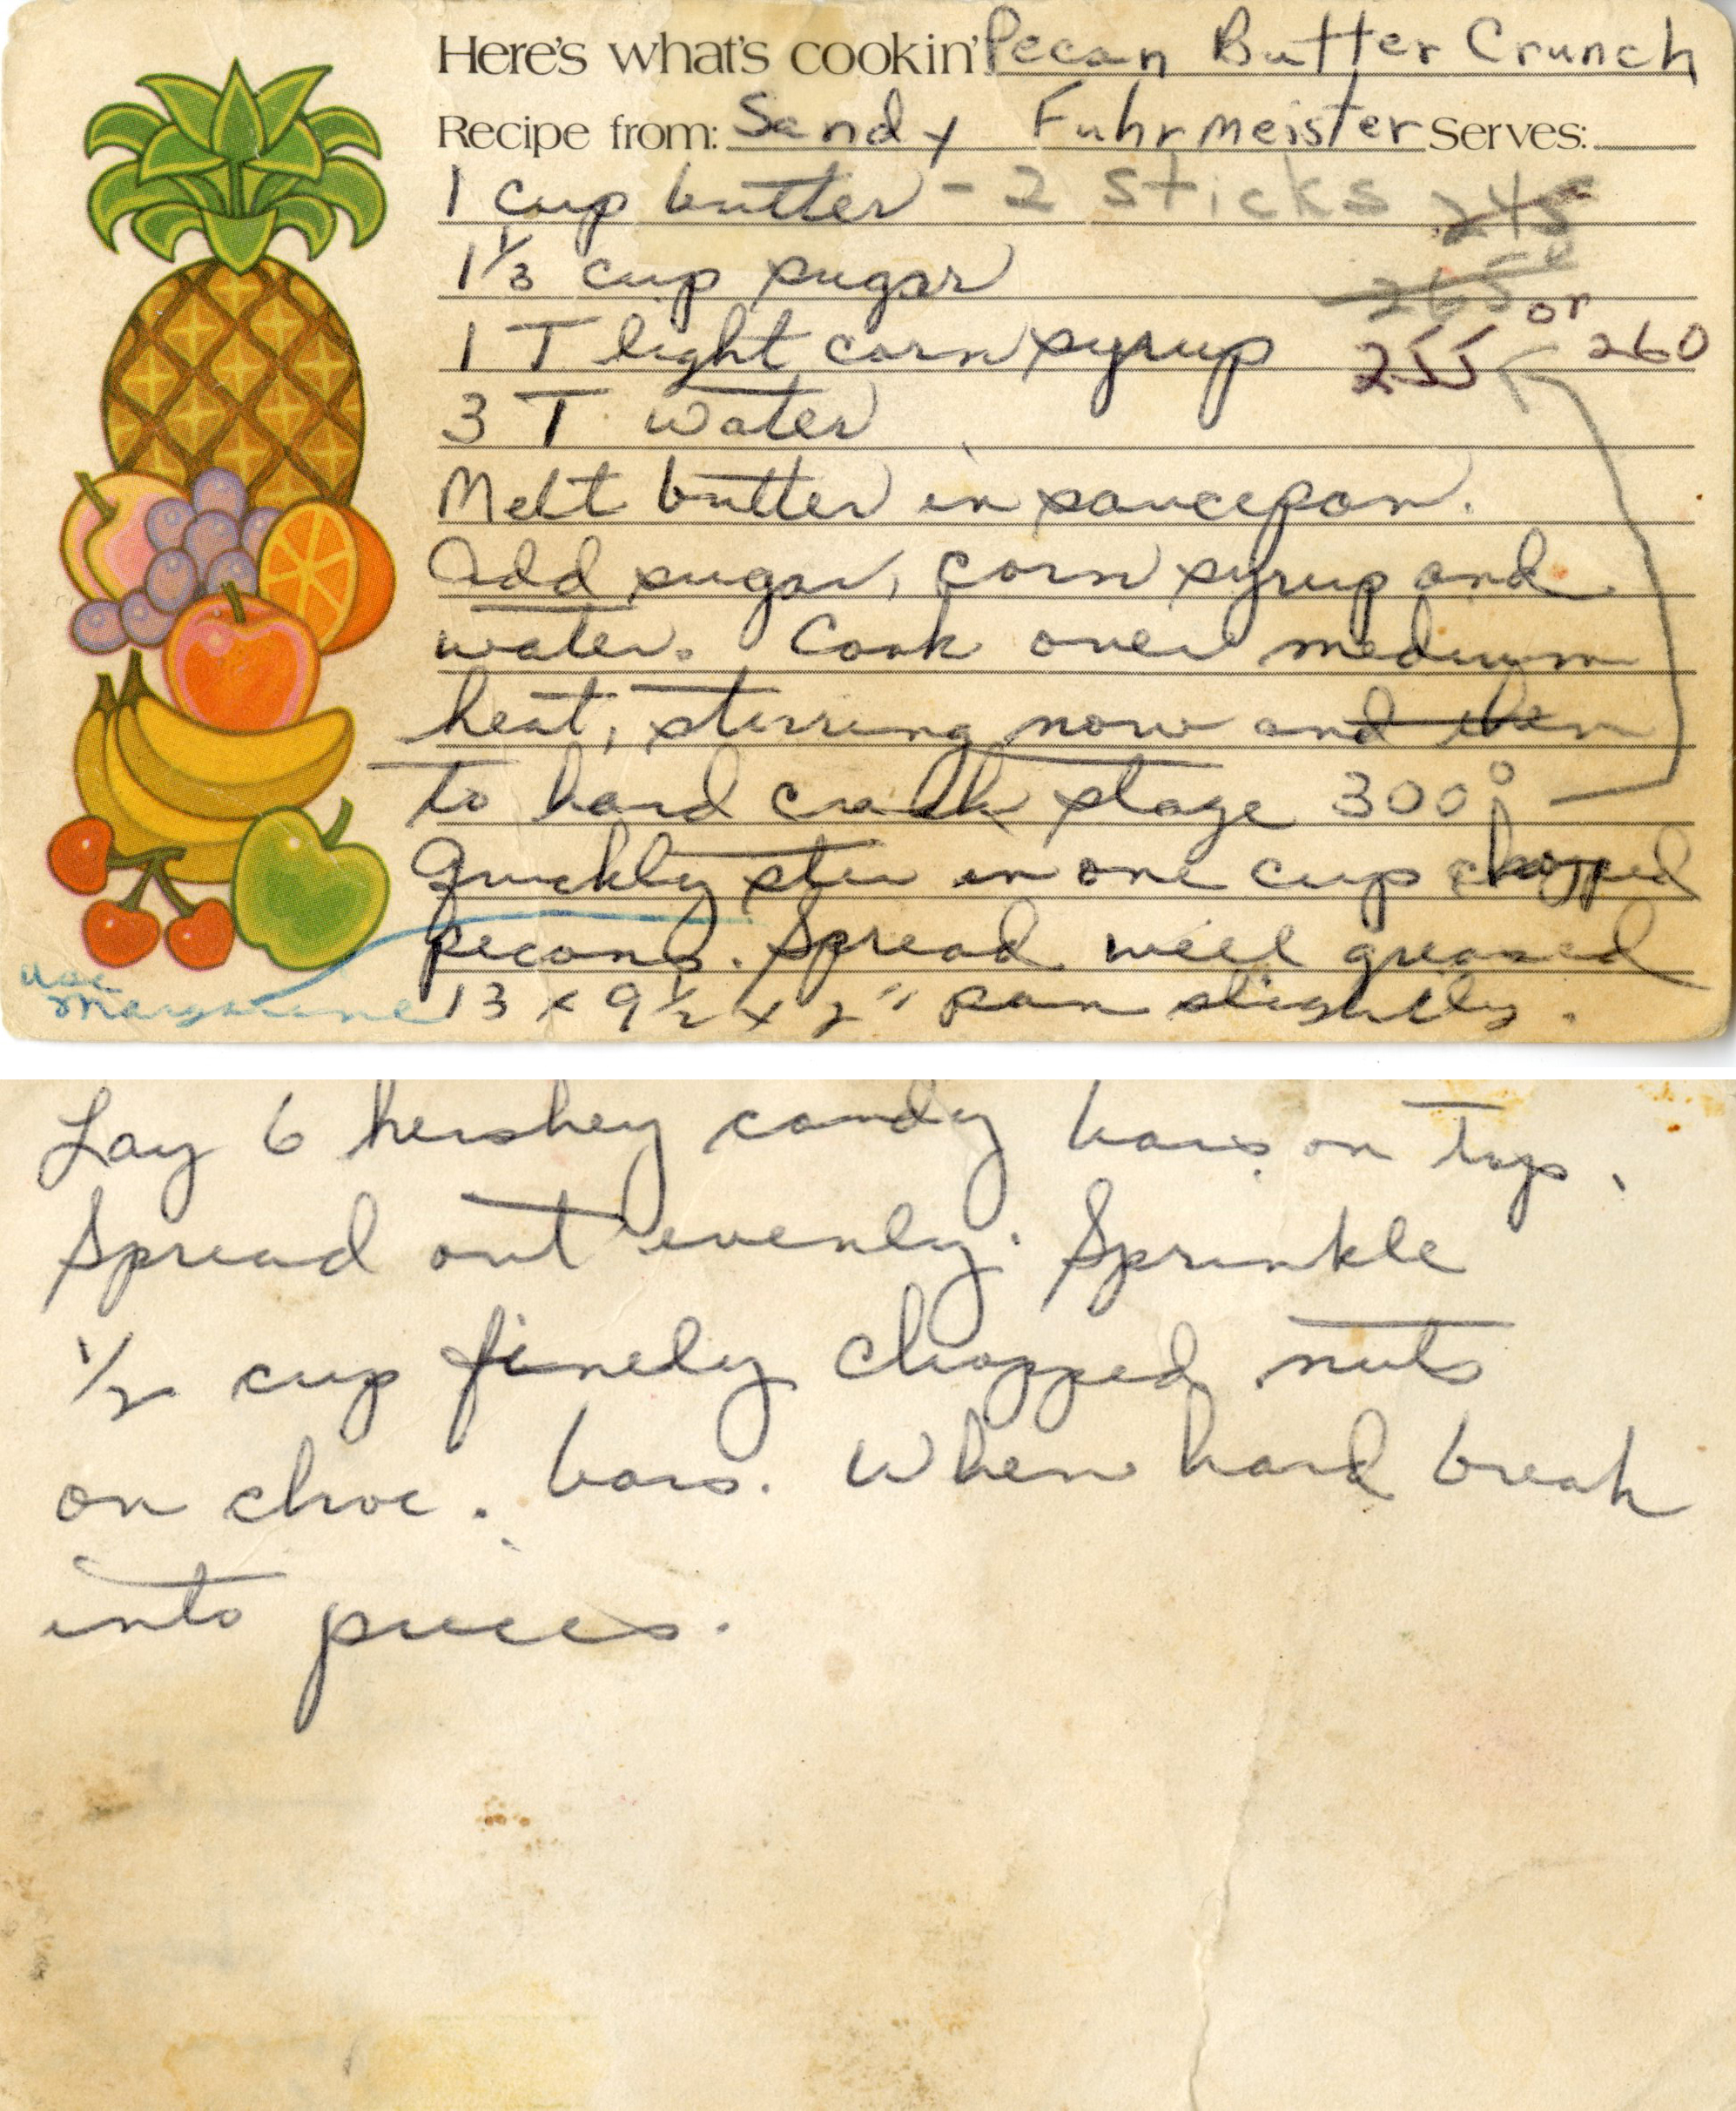 Here's what's cookin' Pecan Butter Crunch
Recipe from: Sandy Fuhrmeister Serves:
1 cup butter - 2 sticks 245
1 1/3 cup sugar 265
or
1 T light corn syrup 255 260
3 T water
Melt butter in saucepan.
Add sugar, corn syrup and
water. Cook over medium
heat, stirring now and then
to hard crack stage 300°
Quickly stir in one cup chopped
pecans. Spread well greased
use
Margarine
13 x 9 1/2 x 2" pan slightly.
Lay 6 hershey candy bars on top.
Spread out evenly. Sprinkle
1/2 cup finely chopped nuts
on choc. bars. When hard break
into pieces.